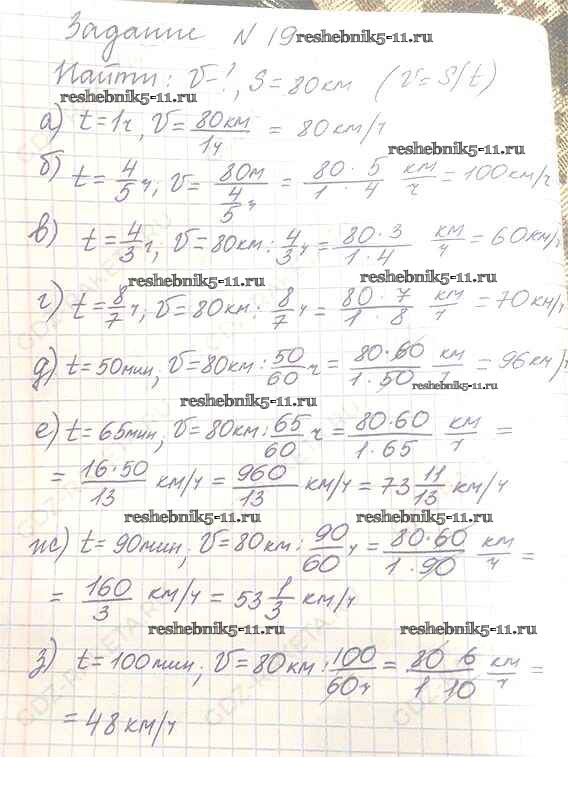 Задание N 19 reshebnik5-11.ru
Найти: V-?, S=80км (V=S/t)
reshebnik5-11.ru
а) t=1ч, V=80км/1ч = 80км/ч
reshebnik5-11.ru
б) t=4/5 ч, V= 80м/(4/5 ч) = 80·5/1·4 км/ч = 100км/ч
в) t=4/3 ч, V=80км:4/3 ч=80·3/1·4 км/ч=60км/ч
reshebnik5-11.ru reshebnik5-11.ru
г) t=8/7 ч, V=80км:8/7 ч=80·7/1·8 км/ч=70км/ч
д) t=50мин, V=80км:50/60 ч=80·60/1·50 км/ч=96км/ч
reshebnik5-11.ru
reshebnik5-11.ru
е) t=65мин, V=80км:65/60 ч=80·60/1·65 км/ч =
= 16·50/13 км/ч = 960/13 км/ч = 73 11/13 км/ч
reshebnik5-11.ru reshebnik5-11.ru
ж) t=90мин, V=80км:90/60 ч=80·60/1·90 км/ч =
= 160/3 км/ч = 53 1/3 км/ч
reshebnik5-11.ru reshebnik5-11.ru
з) t=100мин, V=80км:100/60ч=80 6/1 10 км/ч =
= 48км/ч